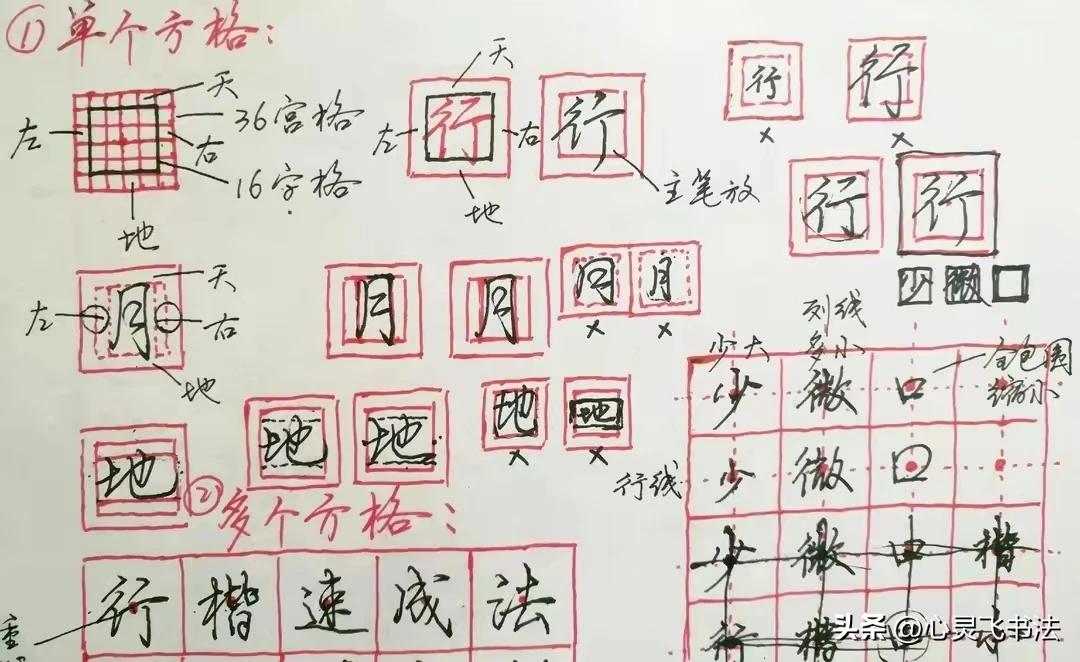 ①单个方格：
天
36宫格
左
右
16字格
地
天
左
行
右
地
行
主笔放
行
×
行
×
行
行
天
左
月
右
地
月
月
月
×
月
×
少
微
口
地
地
地
地
×
地
×
②多个方格：
行楷速成法
重
列线
少大
多小
全包围
缩小
行线
少微口
少微口
少微口楷
行楷
头条@心灵飞书法